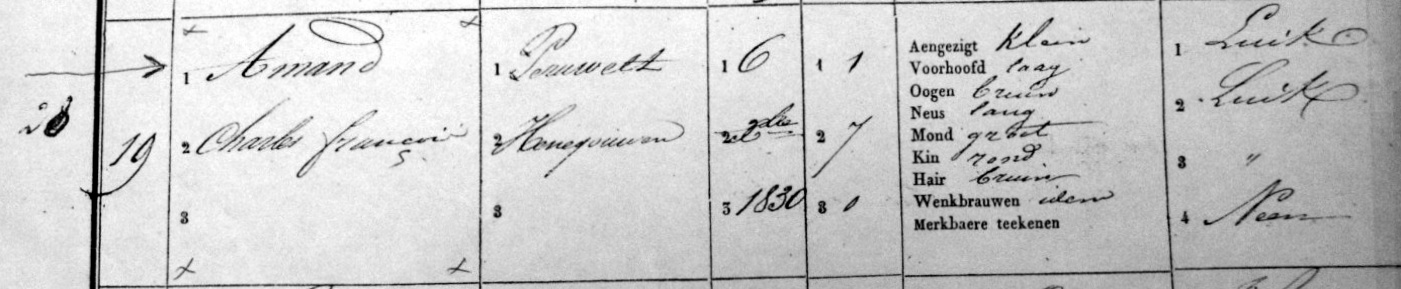 28
19
1 Amand
2 Charles françois
3
1 Peruwelt
2 Henegouwen
3
1 6
2
3 1830
1 1
2 7
3 0
Aengezigt Klein
Voorhoofd laag
Oogen bruin
Neus lang
Mond groot
Kin rond
Hair bruin
Wenkbrauwen idem
Merkbaere teekenen
1 Luik
2 Luik
3 "
4 Neen